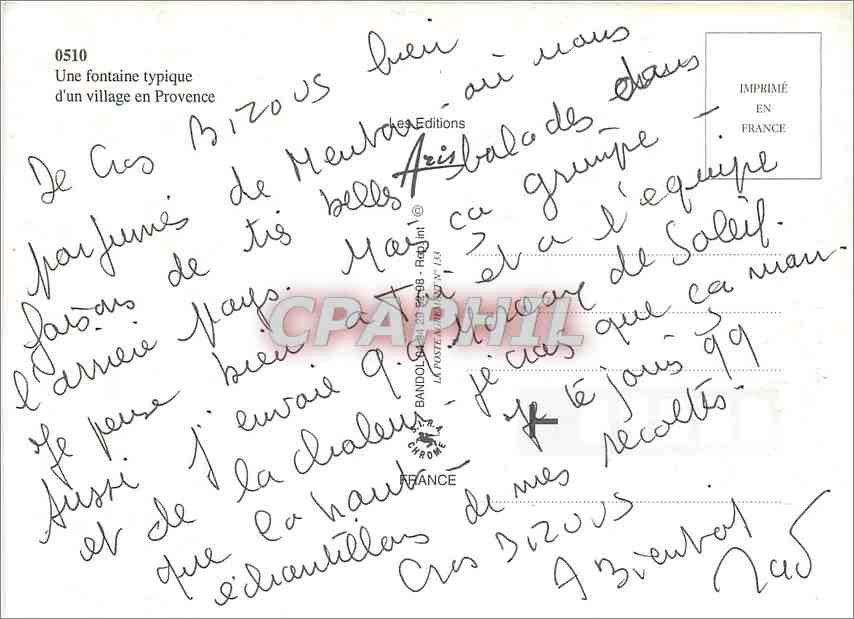 0510
Une fontaine typique
d'un village en Provence
IMPRIMÉ
EN
FRANCE
Les Editions
Aris
BANDOL 04 94 29 52 08 - Reprint ©
LA POSTE AGREMENT N° 133
S.I.R.A.
CHROME
FRANCE
CPAPHIL
De Gros BIZOUS bien
parfumés de Menton - où nous
faisons de très belles balades dans
l'arrière Pays. Mais ça grimpe -
Je pense bien à Toi, et à l'equipe
Aussi J'envoie q.q Morceaux de Soleil.
et de la chaleur - je crois que ça man-
que la haut - Je te joins qq
échantillons de mes récoltes -
Gros BIZOUS
A Bientot